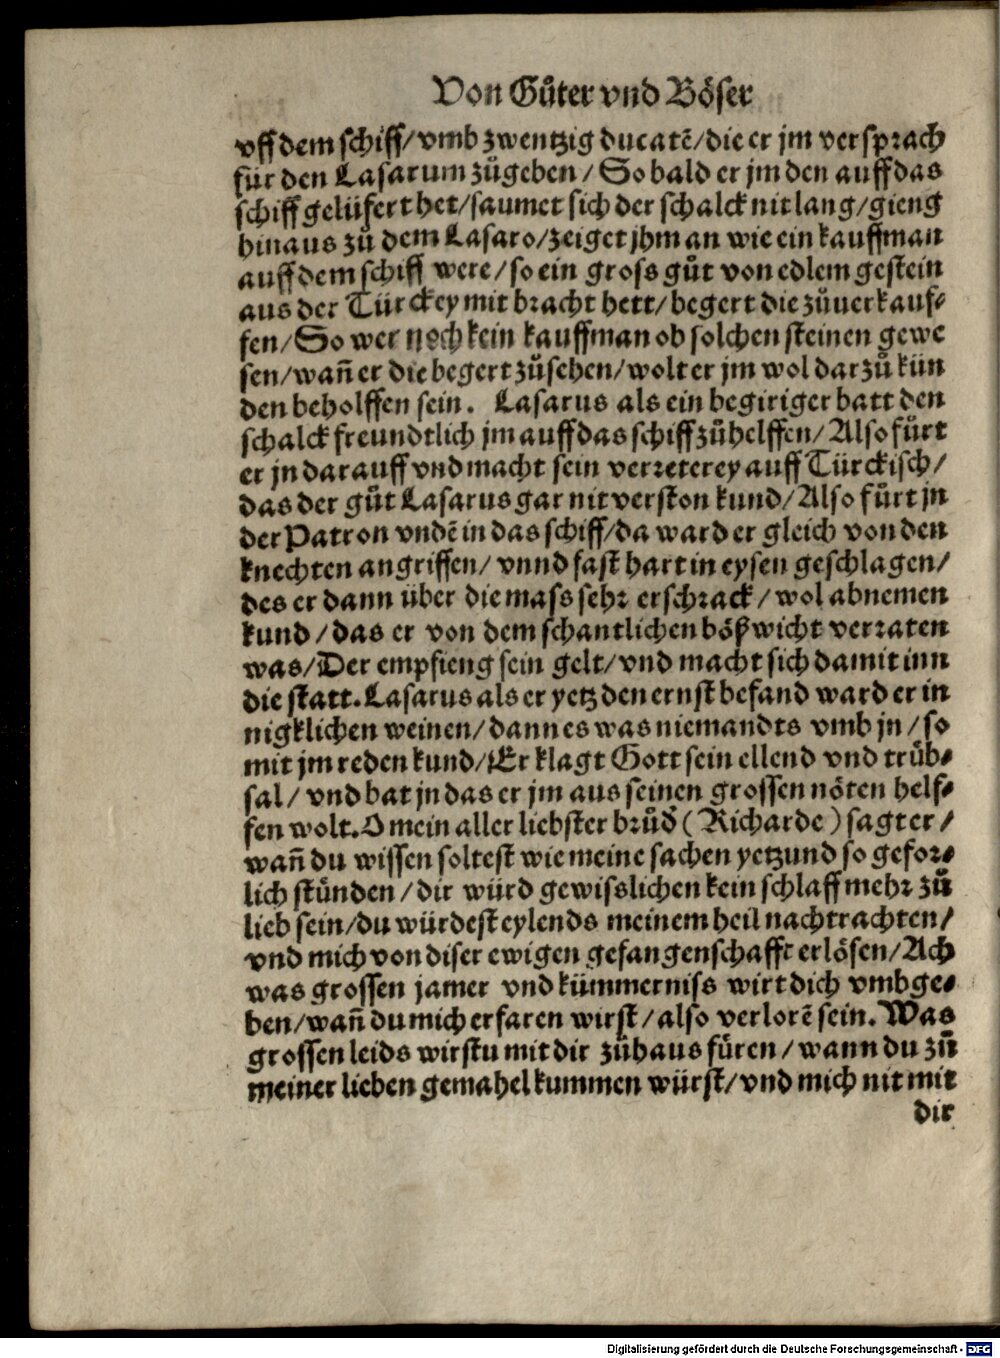 Von Gůter vnd Böser
vff dem schiff/vmb zwentzig ducatẽ/die er jm versprach
für den Lasarum zůgeben/So bald er jm den auff das
schiff gelüfert het/saumet sich der schalck nit lang/gieng
hinaus zů dem Lasaro/zeiget jhm an wie ein kauffman
auff dem schiff were/so ein gross gůt von edlem gestein
aus der Türckey mit bracht hett/begert die zůuerkauf⸗
fen/So wer noch kein kauffman ob solchen steinen gewe
sen/wañ er die begert zůsehen/wolt er jm wol darzů kün
den beholffen sein. Lasarus als ein begiriger batt den
schalck freundtlich jm auff das schiff zůhelffen/Also fůrt
er jn darauff vnd macht sein verreterey auff Türckisch/
das der gůt Lasarus gar nit verston kund/Also fůrt jn
der Patron vndẽ in das schiff/da ward er gleich von den
knechten angriffen/vnnd fast hart in eysen geschlagen/
des er dann über die mass sehr erschrack/wol abnemen
kund/das er von dem schantlichen bößwicht verraten
was/Der empfieng sein gelt/vnd macht sich damit inn
die statt. Lasarus als er yetz den ernst befand ward er in
nigklichen weinen/dann es was niemandts vmb jn/so
mit jm reden kund/Er klagt Gott sein ellend vnd trůb⸗
sal/vnd bat jn das er jm aus seinen grossen nöten helf⸗
fen wolt. O mein aller liebster brůd̾ (Richarde) sagt er/
wañ du wissen soltest wie meine sachen yetzund so gefor⸗
lich stünden/dir würd gewisslichen kein schlaff mehr zů
lieb sein/du würdest eylends meinem heil nachtrachten/
vnd mich von diser ewigen gefangenschafft erlösen/Ach
was grossen jamer vnd kümmerniss wirt dich vmbge⸗
ben/wañ du mich erfaren wirst/also verlorẽ sein. Was
grossen leids wirstu mit dir zůhaus fůren/wann du zů
meiner lieben gemahel kummen würst/vnd mich nit mit
dir
Digitalisierung gefördert durch die Deutsche Forschungsgemeinschaft - DFG